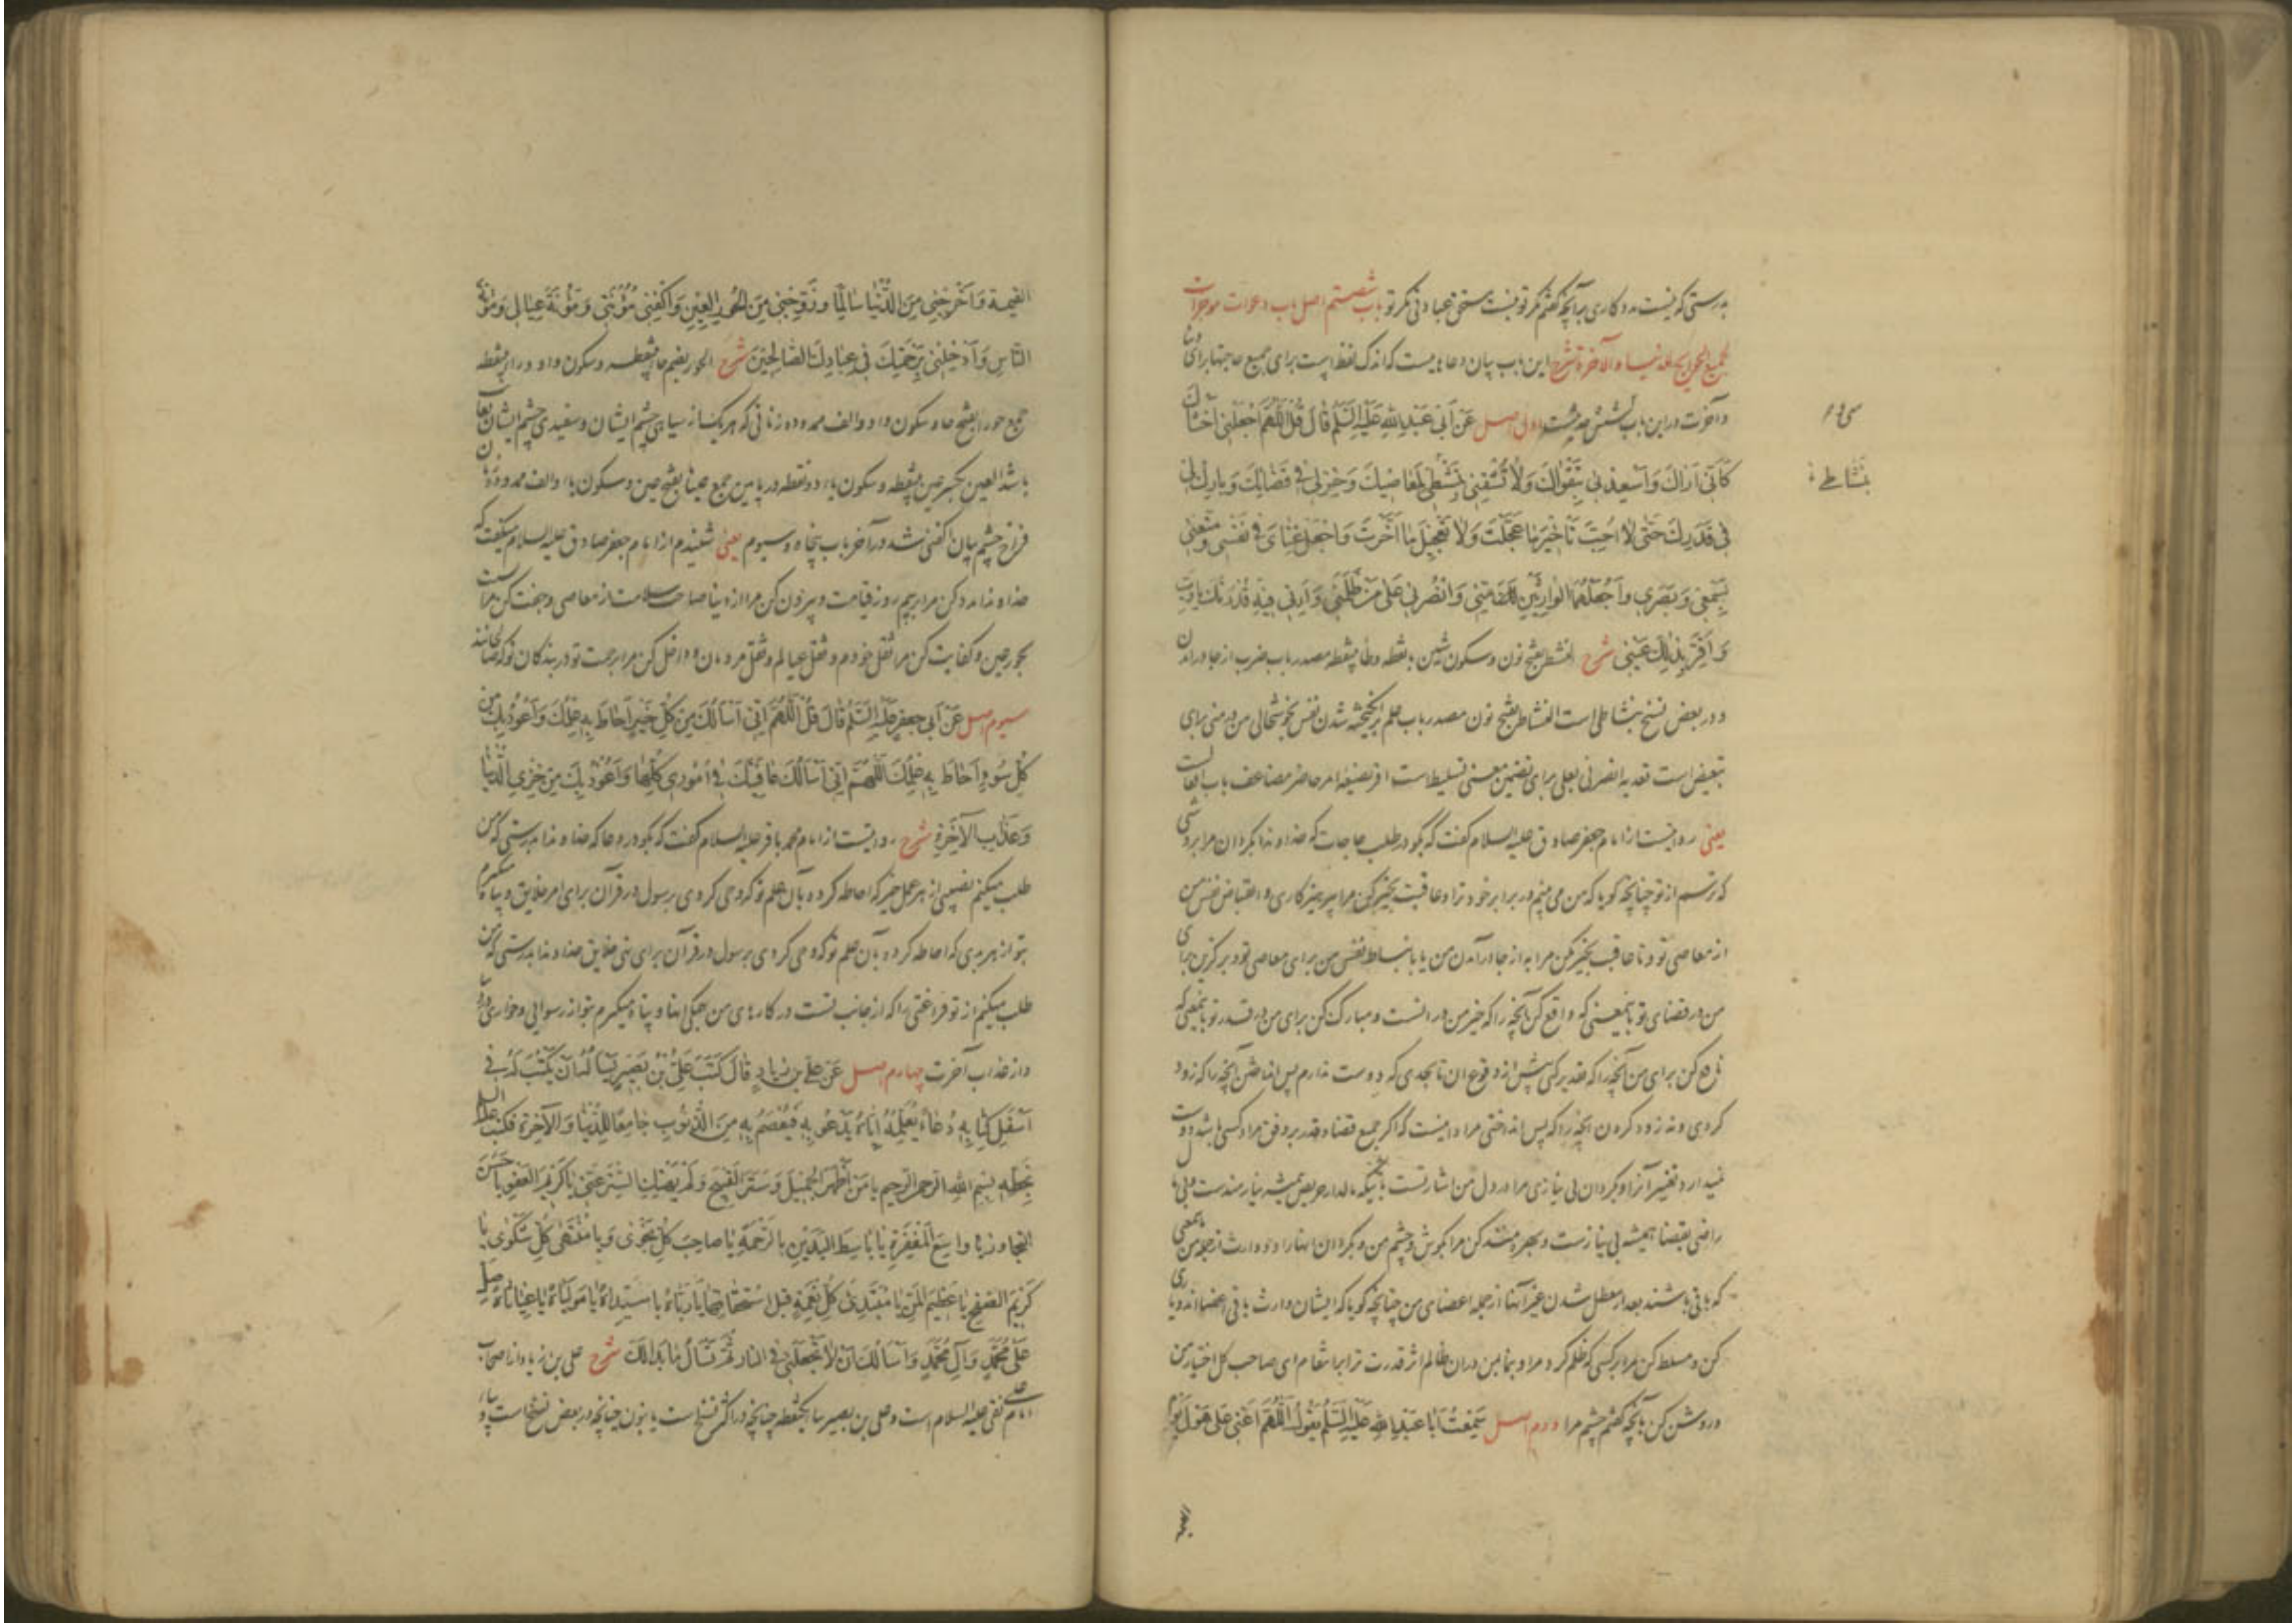 بدرستی که نیست مددکاری بر آنچه گفتم مگر تو نیست مستحق عبادتی مگر تو باب شصتم اصل باب دعوات موجزات
لجمیع الحوایج للدنیا و الآخرة شرح این باب بیان دعاهاییست که اندک لفظ است برای جمیع حاجتها برای دنیا
و آخرت و در این باب شش حدیثست اول اصل عَنْ أَبِی عَبْدِ اللهِ عَلَیْهِ السَّلَمُ قَالَ قُلْ اللَّهُمَّ اجْعَلْنِی أَخْشَاکَ
کَأَنِّی أَرَاکَ وَأَسْعِدْنِی بِتَقْوَاکَ وَلَا تُشْقِنِی بِنَشْطِی لِمَعَاصِیکَ وَخِرْ لِی فِی قَضَائِکَ وَبَارِکْ لِی
سی و ۱
بنشاطی
فِی قَدَرِکَ حَتَّی لَا أُحِبَّ تَأْخِیرَ مَا عَجَّلْتَ وَلَا تَعْجِیلَ مَا أَخَّرْتَ وَاجْعَلْ غِنَایَ فِی نَفْسِی وَمَتِّعْنِی
بِسَمْعِی وَبَصَرِی وَاجْعَلْهُمَا الْوَارِثَیْنِ مِنِّی وَانْصُرْنِی عَلَی مَنْ ظَلَمَنِی وَأَرِنِی فِیهِ قُدْرَتَکَ یَا رَبِّ
وَأَقِرَّ بِذَلِکَ عَیْنِی شرح النشط بفتح نون و سکون شین با نقطه و طاء بینقطه مصدر باب ضرب از جا درآمدن
و در بعض نسخ بنشاطی است النشاط بفتح نون مصدر باب علم برانگیخته شدن نفس بخوشحالی من در منی برای
تبعیض است تعدیه انصرنی بعلی برای تضمین معنی تسلیط است اقر بصیغه امر حاضر مضاعف باب افعالست
یعنی روایتست از امام جعفر صادق علیه السلام گفت که بگو در طلب حاجات که خداوندا بگردان مرا بروشی
که ترسم از تو چنانچه گویا که من می بینم در برابر خود ترا و عاقبت بخیر کن مرا بپرهیزکاری و انقباض نفس من
از معاصی تو و ناعاقبت بخیر مکن مرا به از جا درآمدن من یا بانبساط نفس من برای معاصی تو و برگزین برای
من در قضای تو بانمعنی که واقع کن آنچه را که خیر من در انست و مبارک کن برای من در قدر تو بانمعنی که
نافع کن برای من آنچه را که تقدیر کنی پیش از وقوع ان تا بحدی که دوست ندارم پس انداختن آنچه را که زود
کردی و نه زود کردن آنچه را که پس انداختی مراد اینست که اگر جمیع قضا و قدر بر وفق مراد کسی باشد دوست
نمیدارد تغییر آنرا و بگردان بی نیازی مرا در دل من اشارتست باینکه مالدار حریص همیشه نیازمندست و
راضی بقضا همیشه بی نیازست و بهره مند کن مرا بگوش و چشم من و بگردان انها را دو وارث از جمله من بمعنی
که باقی باشند بعد از معطل شدن غیر آنها از جمله اعضای من چنانچه گویا که ایشان وارث باقی اعضااند و یاری
کن و مسلط کن مرا بر کسی که ظلم کرد مرا و بنما بمن در ان ظالم اثر قدرت ترا برا انتقام ای صاحب کل اختیار من
و روشن کن بآنچه گفتم چشم مرا دوم اصل سَمِعْتُ أَبَا عَبْدِ اللهِ عَلَیْهِ السَّلَمُ یَقُولُ اللَّهُمَّ أَعِنِّی عَلَی هَوْلِ یَوْمِ
القیمة وَأَخْرِجْنِی مِنَ الدُّنْیَا سَالِمًا وَزَوِّجْنِی مِنَ الْحُورِ الْعِینِ وَاکْفِنِی مَؤُنَتِی وَمَؤُنَةَ عِیَالِی وَمَؤُنَةَ
النَّاسِ وَأَدْخِلْنِی بِرَحْمَتِکَ فِی عِبَادِکَ الصَّالِحِینَ شرح الحور بضم حاء بینقطه و سکون واو و راء بینقطه
جمع حورا بفتح حا و سکون واو و الف ممدوده زنانی که هر یک از سیاهی چشم ایشان و سفیدی چشم ایشان بغایت
باشد العین بکسر عین بینقطه و سکون یاء دو نقطه در پایین جمع عینا بفتح عین و سکون یاء و الف ممدوده زنان
فراخ چشم بیان اکفنی شد در آخر باب پنجاه و سیوم یعنی شنیدم از امام جعفر صادق علیه السلام میگفت که
خداوندا مدد کن مرا بر بیم روز قیامت و بیرون کن مرا از دنیا صاحب سلامت از معاصی و جفت کن مرا
بحور عین و کفایت کن مرا ثقل خودم و ثقل عیالم و ثقل مردمان و داخل کن مرا برحمت تو در بندگان تو که صالحانند
سیوم اصل عَنْ أَبِی جَعْفَرٍ عَلَیْهِ السَّلَمُ قَالَ قُلْ اللَّهُمَّ إِنِّی أَسْأَلُکَ مِنْ کُلِّ خَیْرٍ أَحَاطَ بِهِ عِلْمُکَ وَأَعُوذُ بِکَ مِنْ
کُلِّ سُوءٍ أَحَاطَ بِهِ عِلْمُکَ اللَّهُمَّ إِنِّی أَسْأَلُکَ عَافِیَتَکَ فِی أُمُورِی کُلِّهَا وَأَعُوذُ بِکَ مِنْ خِزْیِ الدُّنْیَا
وَعَذَابِ الْآخِرَةِ شرح روایتست از امام محمد باقر علیه السلام گفت که بگو در دعا که خداوندا بدرستی که من
طلب میکنم نصیبی از هر عمل خیر که احاطه کرده بآن علم تو که وحی کردی برسول در قرآن برای امر خلایق و پناه میگیرم
بتو از هر بدی که احاطه کرده بآن علم تو که وحی کردی برسول در قرآن برای نهی خلایق خداوندا بدرستی که من
طلب میکنم از تو فراغتی را که از جانب تست در کارهای من همگی انها و پناه میگیرم بتو از رسوایی و خواری در دنیا
و از عذاب آخرت چهارم اصل عَنْ عَلِیِّ بْنِ زِیَادٍ قَالَ کَتَبَ عَلِیُّ بْنُ بَصِیرٍ یَسْأَلُهُ أَنْ یَکْتُبَ لَهُ فِی
أَسْفَلِ کِتَابِهِ دُعَاءً یُعَلِّمُهُ إِیَّاهُ یَدْعُو بِهِ فَیُعْصَمُ بِهِ مِنَ الذُّنُوبِ جَامِعًا لِلدُّنْیَا وَالْآخِرَةِ فَکَتَبَ علیه السلم
بِخَطِّهِ بِسْمِ اللهِ الرَّحْمَنِ الرَّحِیمِ یَا مَنْ أَظْهَرَ الْجَمِیلَ وَسَتَرَ الْقَبِیحَ وَلَمْ یَهْتِکِ السِّتْرَ عَنِّی یَا کَرِیمَ الْعَفْوِ یَا حَسَنَ
التجاوز یَا وَاسِعَ الْمَغْفِرَةِ یَا بَاسِطَ الْیَدَیْنِ بِالرَّحْمَةِ یَا صَاحِبَ کُلِّ نَجْوَی وَیَا مُنْتَهَی کُلِّ شَکْوَی یَا
کَرِیمَ الصَّفْحِ یَا عَظِیمَ الْمَنِّ یَا مُبْتَدِئَ کُلِّ نِعْمَةٍ قَبْلَ اسْتِحْقَاقِهَا یَا رَبَّاهُ یَا سَیِّدَاهُ یَا مَوْلَیَاهُ یَا غِیَاثَاهُ صَلِّ
عَلَی مُحَمَّدٍ وَآلِ مُحَمَّدٍ وَأَسْأَلُکَ أَنْ لَا تَجْعَلَنِی فِی النَّارِ ثُمَّ تَسْأَلُ مَا بَدَا لَکَ شرح علی بن زیاد از اصحاب
امام علی نقی علیه السلام است و علی بن بصیر بباء یکنقطه چنانچه در اکثر نسخ است یا بنون چنانچه در بعض نسخ است